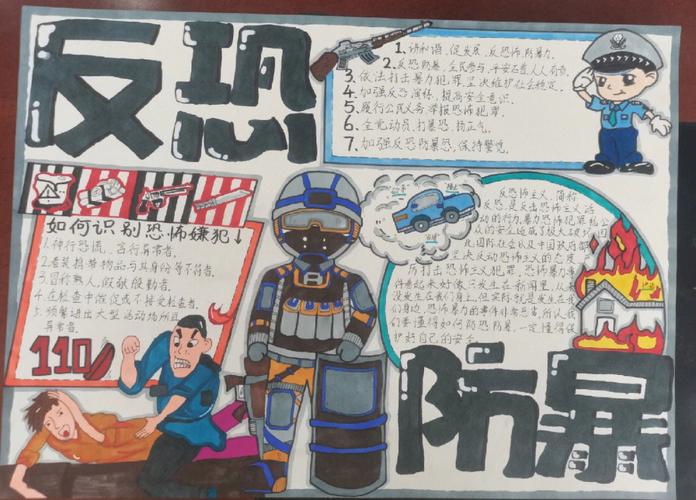 反恐
1、讲和谐、促发展、反恐怖、防暴力。
2、反恐防暴、全民参与、平安石嘴人人有责。
3、依法打击暴力犯罪、坚决维护社会稳定。
4、加强反恐演练、提高安全意识。
5、履行公民义务、举报恐怖犯罪。
6、全党动员、打暴恐、扬正气。
7、加强反恐防暴恐、保持警觉。
如何识别恐怖嫌犯↓
1.神行恐慌、言行异常者。
2.着装携带物品与其身份等不符者。
3.冒称熟人、假献殷勤者。
4.在检查中催促或不接受检查者。
5.频繁进出大型活动场所且
异常者。
110
反恐怖主义、简称
反恐、是反击恐怖主义活
动的行为、暴力恐怖犯罪
人的安全造成了极大
团在会以及中国政府部
坚决反动恐怖主义的态度
厉打击恐怖主义犯罪、恐怖暴力事
件看起来好像只发生在新闻里、从来
没发生在我们身上、但实际就是发生在我
们身边、恐怖暴力的事件时常危害、所以我
们要懂得如何防恐防暴、一定懂得保
护好自己的安全
防暴